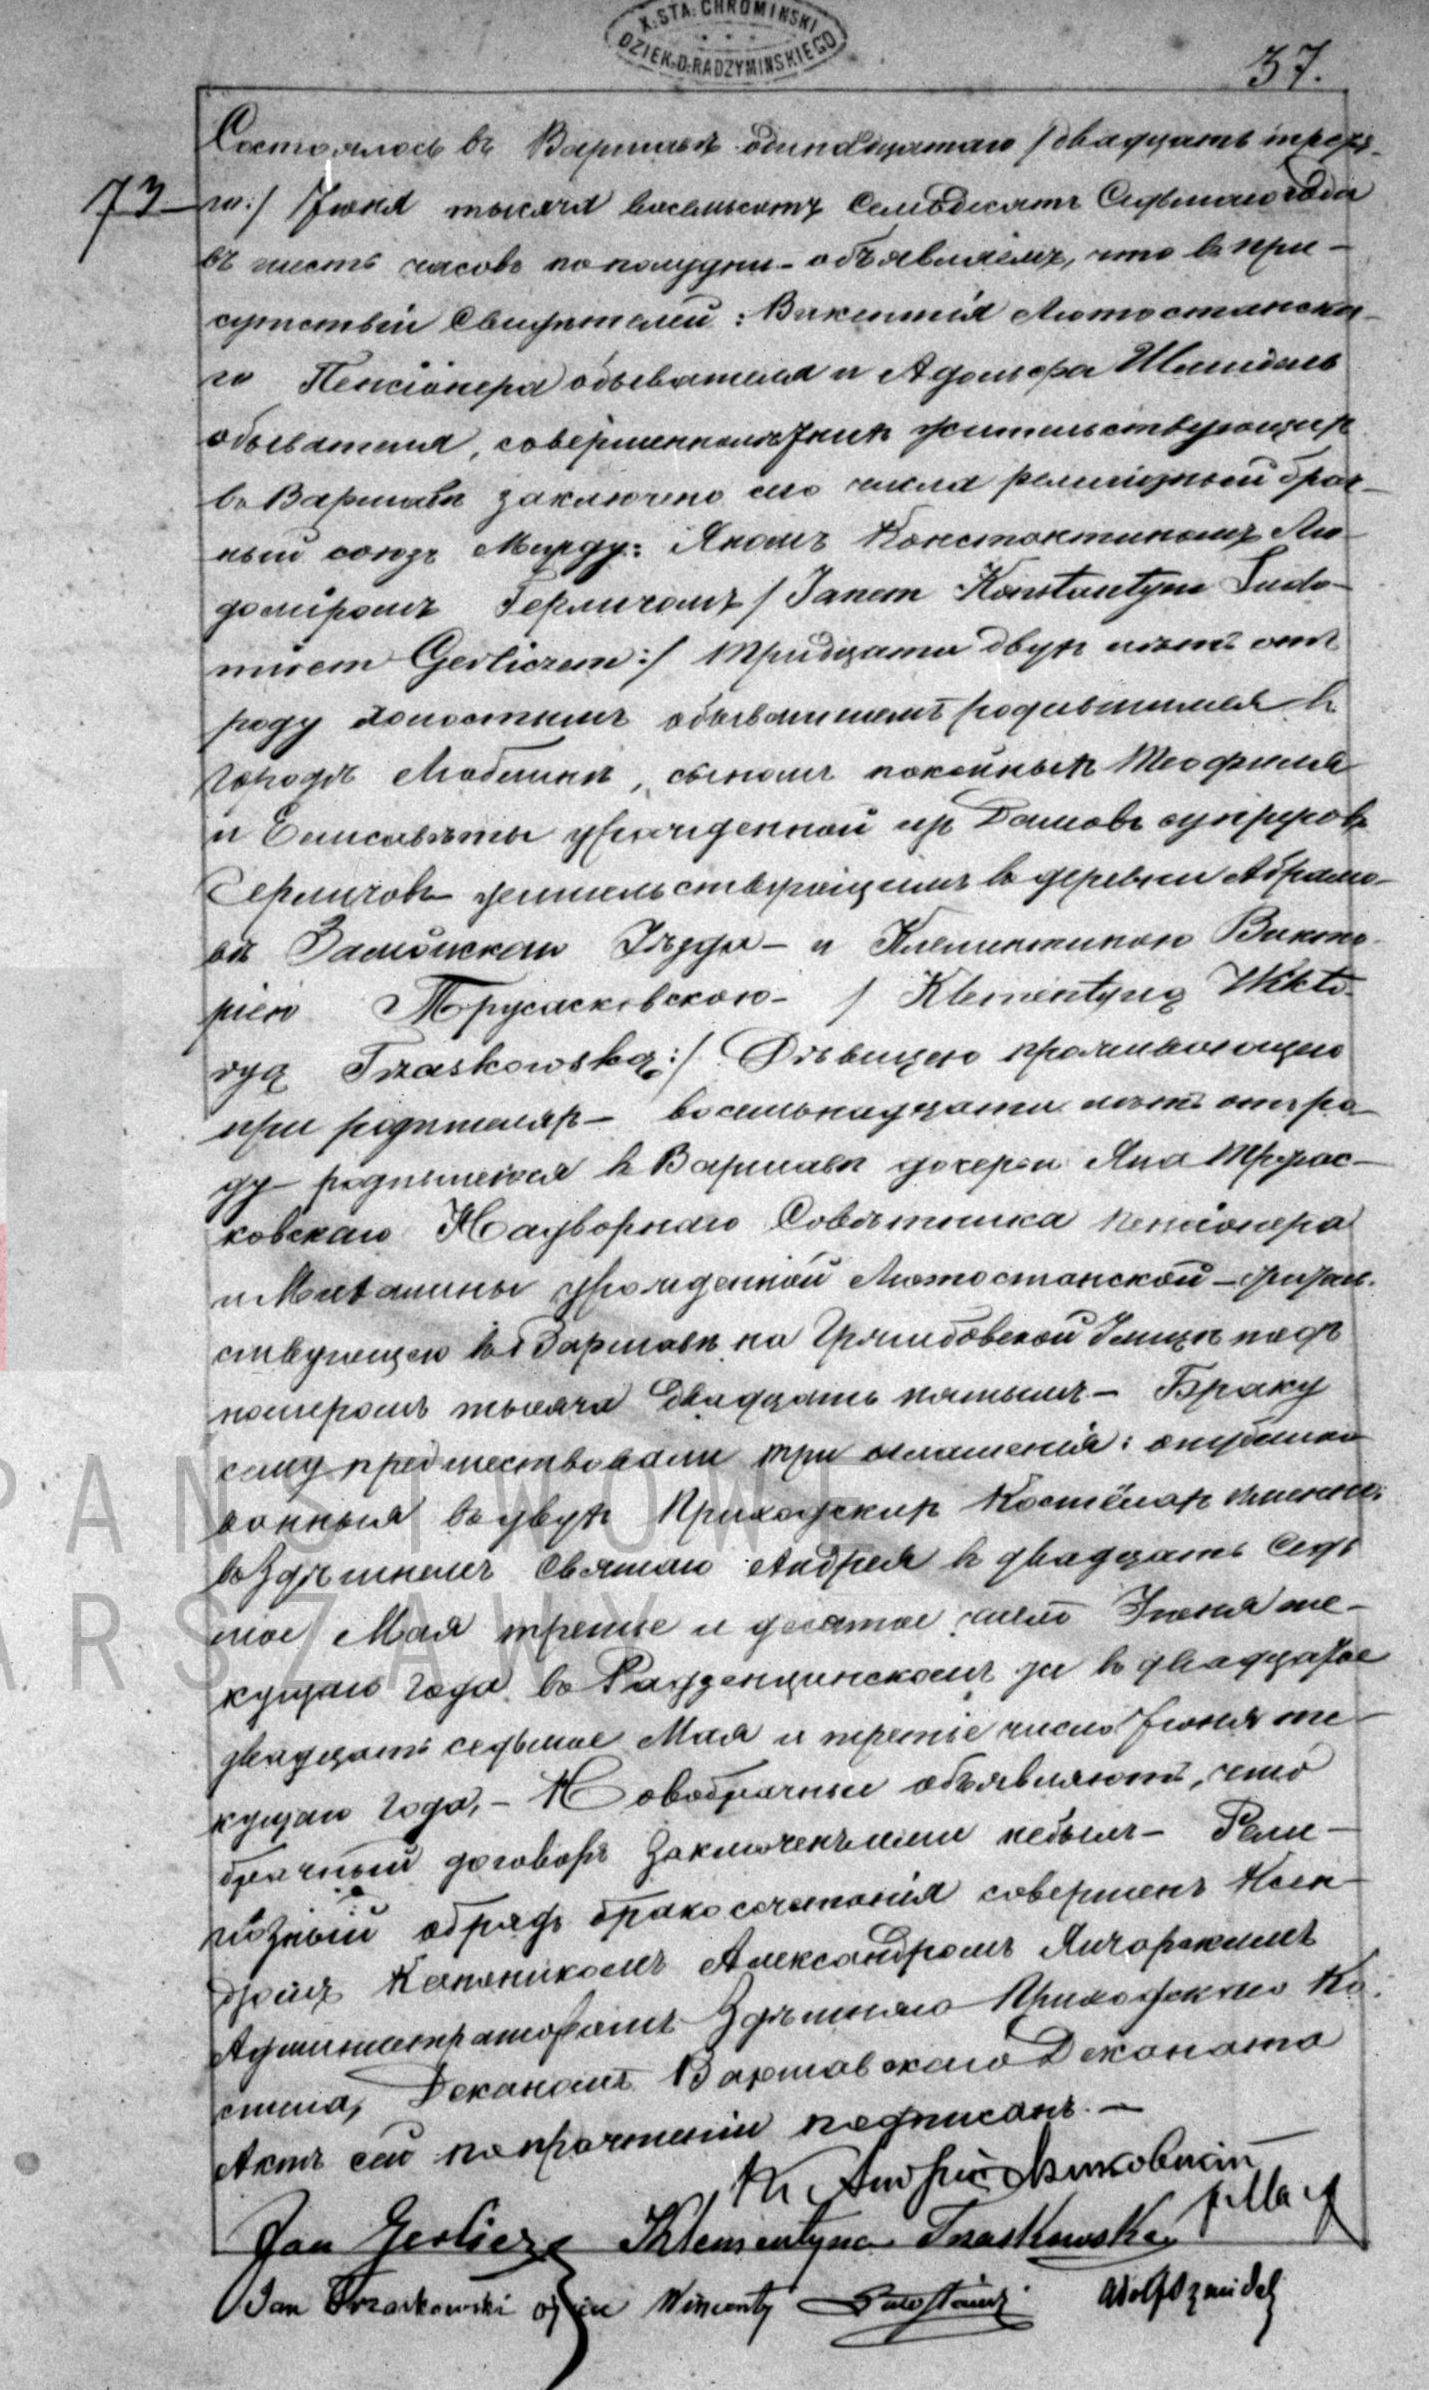 X. STA. CHROMINSKI
DZIEK. D. RADZYMINSKIEGO
37.
73
Состоялось въ Варшавѣ одиннадцатаго /двадцать треть-
го:/ Іюня тысяча восемьсотъ семьдесятъ седьмаго года
въ шесть часовъ по полудни – объявляемъ, что въ при-
сутствіи свидѣтелей: Викентія Лютостанска-
го Пенсіонера обывателя и Адольфа Шмидель
обывателя, совершеннолѣтнихъ жительствующихъ
въ Варшавѣ заключено сего числа религіозный брач-
ный союзъ между: Яномъ Константиномъ Лю-
доміромъ Герличомъ / Janem Konstantym Ludo-
mirem Gerliczem:/ тридцати двухъ лѣтъ отъ
роду холостымъ обывателемъ родившимся въ
городѣ Люблинѣ, сыномъ покойныхъ Теофиля
и Елисаветы урожденной изъ Дамовъ супруговъ
Герличовъ – жительствующимъ въ деревни Абрамо-
вѣ Замойскаго Уѣзда – и Клементиною Викто-
ріею Трзасковскою – / Klementyną Wikto-
ryą Trzaskowską:/ Дѣвицею проживающею
при родителяхъ – восемьнадцати лѣтъ отъ ро-
ду – родившеюся въ Варшавѣ дочерью Яна Трзас-
ковскаго Надворнаго Совѣтника пенсіонера
и Матыльды урожденной Лютостанской – житель-
ствующею въ Варшавѣ на Гржибовской Улицѣ подъ
номеромъ тысяча двадцать пятымъ – Браку
сему предшествовали три оглашенія: опублико-
ванныя въ двухъ Приходскихъ Костёлахъ именно:
въ здѣшнемъ Святаго Андрея въ двадцать седь
мое Мая третіе и десятое число Іюня те-
кущаго года, въ Радзенцинскомъ же въ двадцатое
двадцать седьмое Мая и третіе число Іюня те-
кущаго года, – Новобрачные объявляютъ, что
брачный договоръ заключенъ ими не былъ – Рели-
гіозный обрядъ бракосочетанія совершенъ Ксен-
дзомъ Каноникомъ Александромъ Ячоркимъ
Администраторомъ Здѣшняго Приходскаго Ко-
стела, Деканомъ Варшавскаго Деканата
Актъ сей по прочтеніи подписанъ. –
Кс. Андрей
Jan Gerlicz Klementyna Trzaskowska
Jan Trzaskowski ojciec Wincenty Lutostański Adolf Szmidel
PANSTWOWE
ARSZAWY